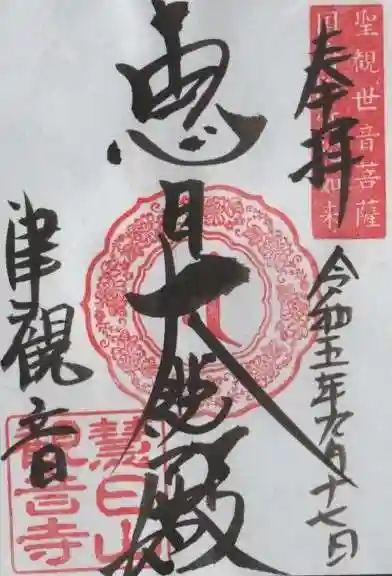 聖観世音菩薩
国 如来
奉拝
令和五年九月十七日
恵日大悲殿
津観音
慧日山
觀音寺